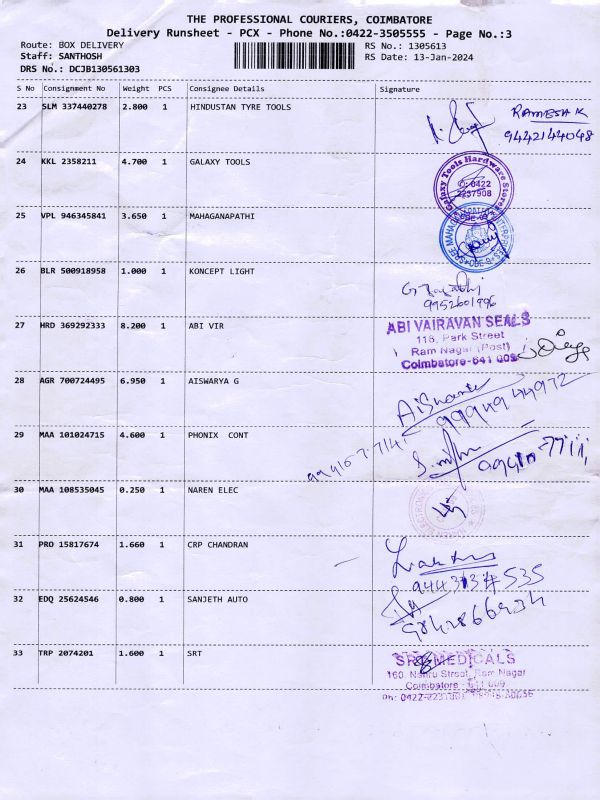 THE PROFESSIONAL COURIERS, COIMBATORE
Delivery Runsheet - PCX - Phone No.:0422-3505555 - Page No.:3
Route: BOX DELIVERY RS No.: 1305613
Staff: SANTHOSH RS Date: 13-Jan-2024
DRS No.: DCJB130561303
S No Consignment No Weight PCS Consignee Details Signature
23 SLM 337440278 2.800 1 HINDUSTAN TYRE TOOLS
RAMESH K
9442144048
24 KKL 2358211 4.700 1 GALAXY TOOLS
Galaxy Tools Hardware Store
0422
2237908
25 VPL 946345841 3.650 1 MAHAGANAPATHI
26 BLR 500918958 1.000 1 KONCEPT LIGHT
9952601996
27 HRD 369292333 8.200 1 ABI VIR
ABI VAIRAVAN SEALS
116, Park Street
Ram Nagar (Post)
Coimbatore-641 009
28 AGR 700724495 6.950 1 AISWARYA G
Aiswarya
9994944972
29 MAA 101024715 4.600 1 PHONIX CONT
30 MAA 108535045 0.250 1 NAREN ELEC
31 PRO 15817674 1.660 1 CRP CHANDRAN
32 EDQ 25624546 0.800 1 SANJETH AUTO
33 TRP 2074201 1.600 1 SRT
MEDICALS
160, Nehru Street, Ram Nagar
Coimbatore - 641 009